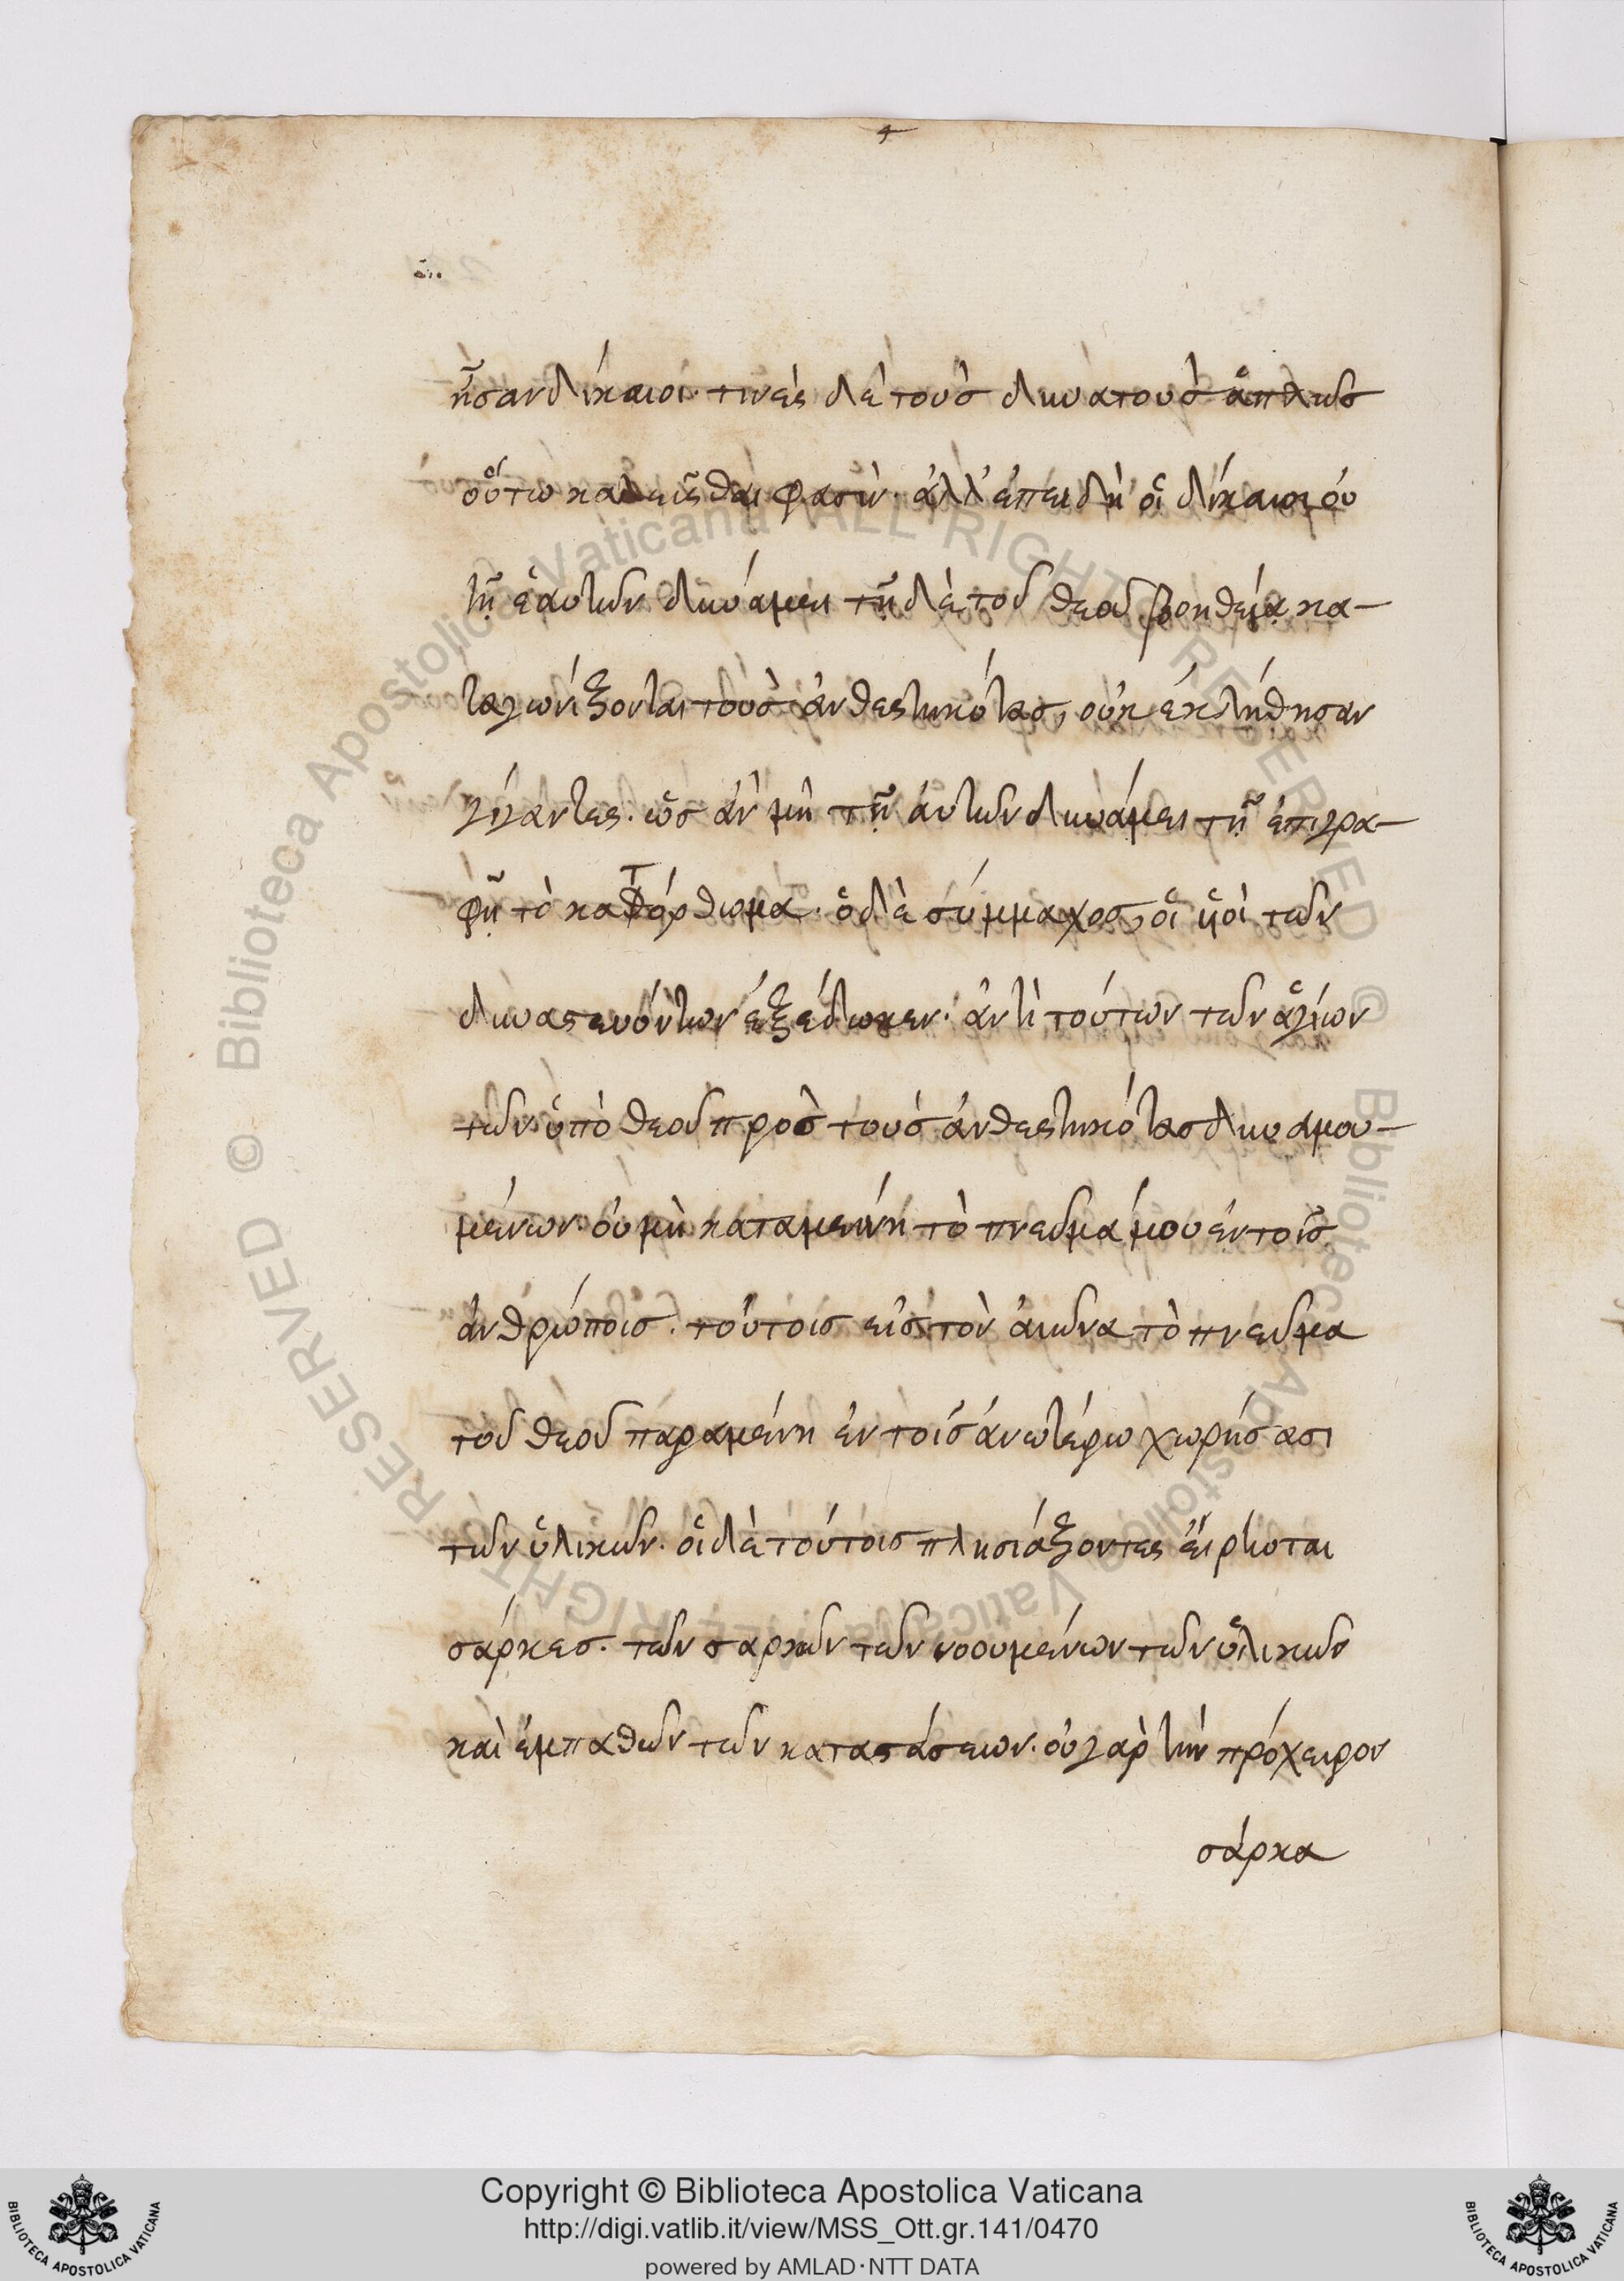 ἦσαν δίκαιοι· τινὲς δὲ τοὺς δυνατοὺς ἁπλῶς
οὕτω καλεῖσθαι φασὶν· ἀλλ' ἐπειδὴ οἱ δίκαιοι οὐ
τῇ ἑαυτῶν δυνάμει τῇ δὲ τοῦ θεοῦ βοηθείᾳ κα-
ταγωνίζονται τοὺς ἀνθεστηκότας, οὐκ ἐκλήθησαν
γίγαντες. ὡς ἂν μὴ τῇ ἀυτῶν δυνάμει τῇ ἐπιγρα-
φῇ τὸ κατόρθωμα. ὁ δὲ σύμμαχος, οἱ ὑοὶ τῶν
δυναστευόντων ἐξέδωκεν· ἀντὶ τούτων τῶν ἁγίων
τῶν ὑπὸ θεοῦ πρὸς τοὺς ἀνθεστηκότας δυναμου-
μένων. οὐ μὴ καταμείνῃ τὸ πνεῦμά μου ἐν τοῖς
ἀνθρώποις. τούτοις εἰς τὸν ἀιῶνα τὸ πνεῦμα
τοῦ θεοῦ παραμένη ἐν τοῖς ἀνωτέρω χωρήσασι
τῶν ὑλικῶν. οἱ δὲ τούτοις πλησιάζοντες εἴρηνται
σάρκες. τῶν σαρκῶν τῶν νοουμένων τῶν ὑλικῶν
καὶ ἐμπαθῶν τῶν καταστάσεων. οὐ γὰρ τὴν πρόχειρον
σάρκα
Copyright © Biblioteca Apostolica Vaticana
http://digi.vatlib.it/view/MSS_Ott.gr.141/0470
powered by AMLAD·NTT DATA
BIBLIOTECA APOSTOLICA VATICANA
BIBLIOTECA APOSTOLICA VATICANA
© Biblioteca Apostolica Vaticana ALL RIGHTS RESERVED
© Biblioteca Apostolica Vaticana ALL RIGHTS RESERVED